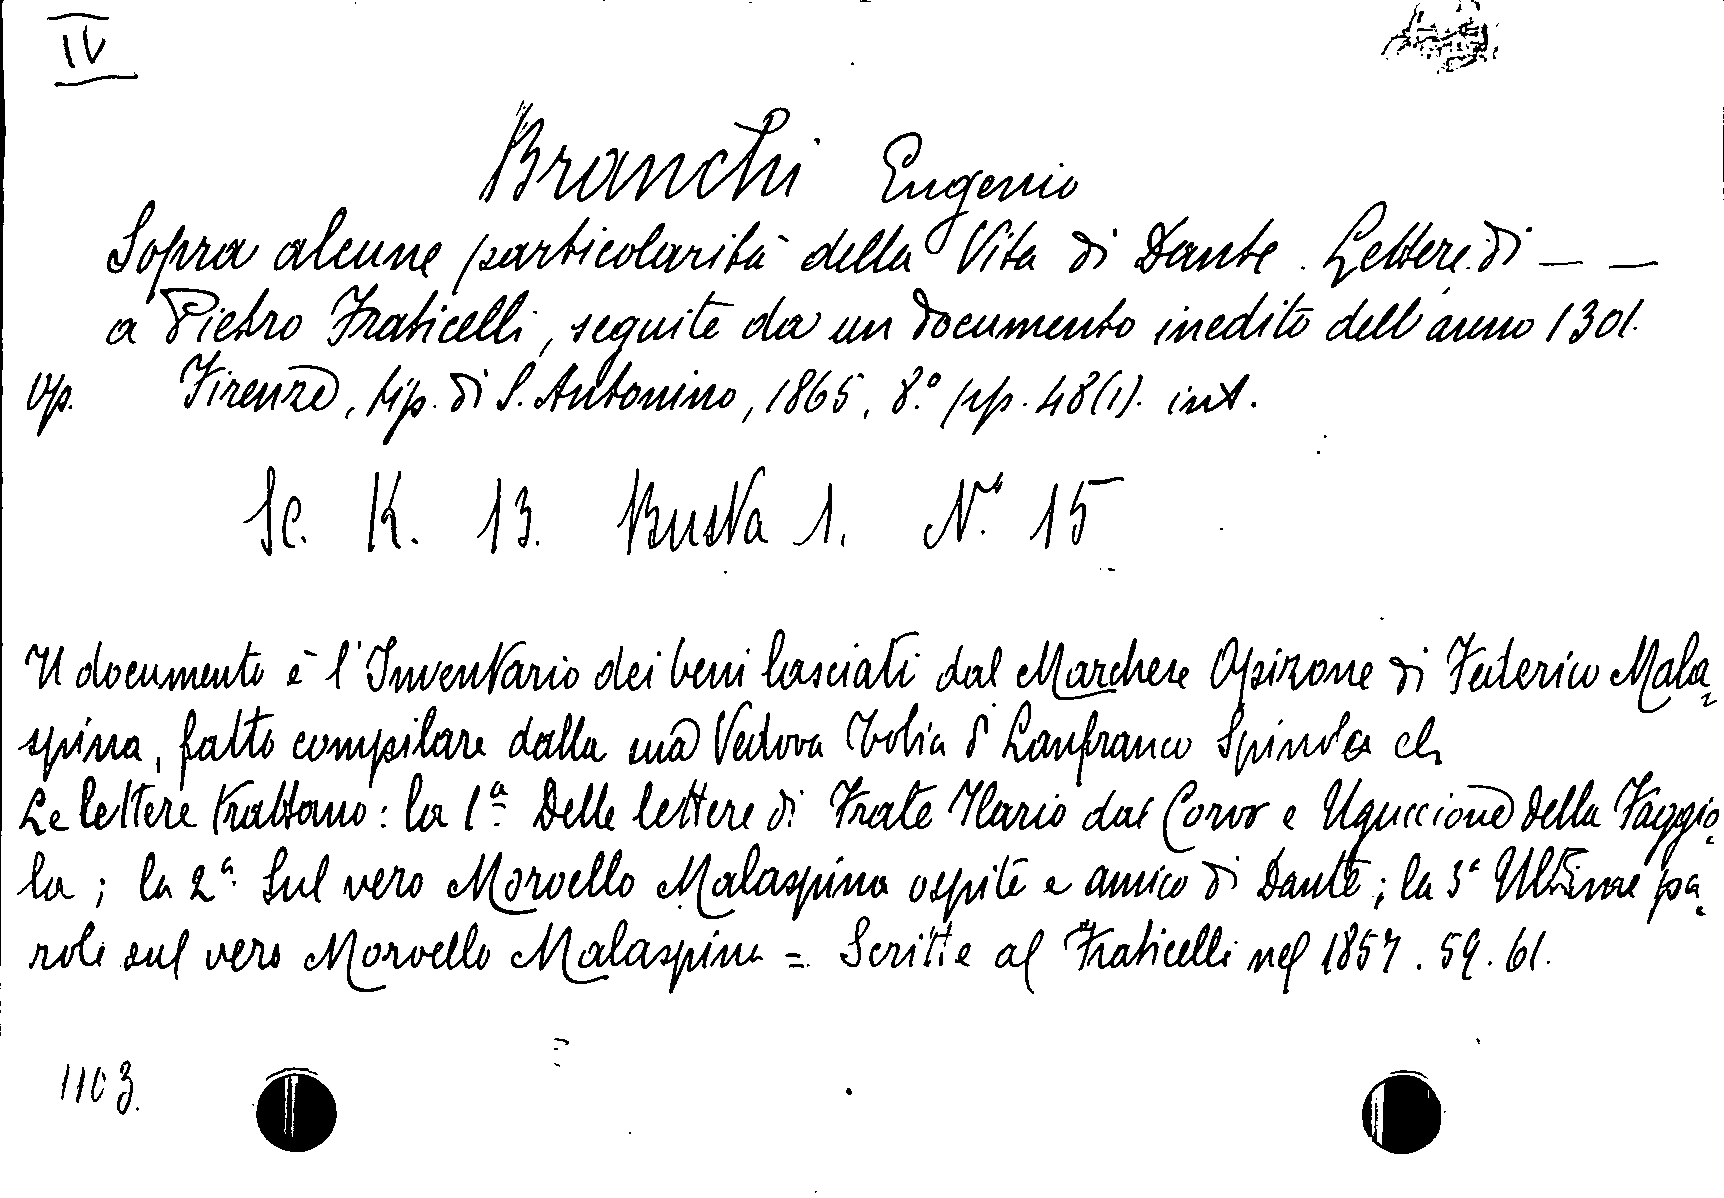 IV
Branchi Eugenio
Sopra alcune particolarità della Vita di Dante. Lettere di — —
a Pietro Fraticelli, seguite da un documento inedito dell'anno 1301.
Op. Firenze, tip. di S. Antonino, 1865, 8.° pp. 48(1). int.
Sc. K. 13. Busta 1. N.° 15
Il documento è l'Inventario dei beni lasciati dal Marchese Opizone di Federico Mala=
spina, fatto compilare dalla sua Vedova Tobia di Lanfranco Spinola
Le lettere trattano: la 1ª Delle lettere di Frate Ilario dal Corvo e Uguccione della Faggio=
la; la 2ª Sul vero Moroello Malaspina ospite e amico di Dante; la 3ª Ultime pa=
role sul vero Moroello Malaspina = Scritte al Fraticelli nel 1857. 59. 61.
1103.